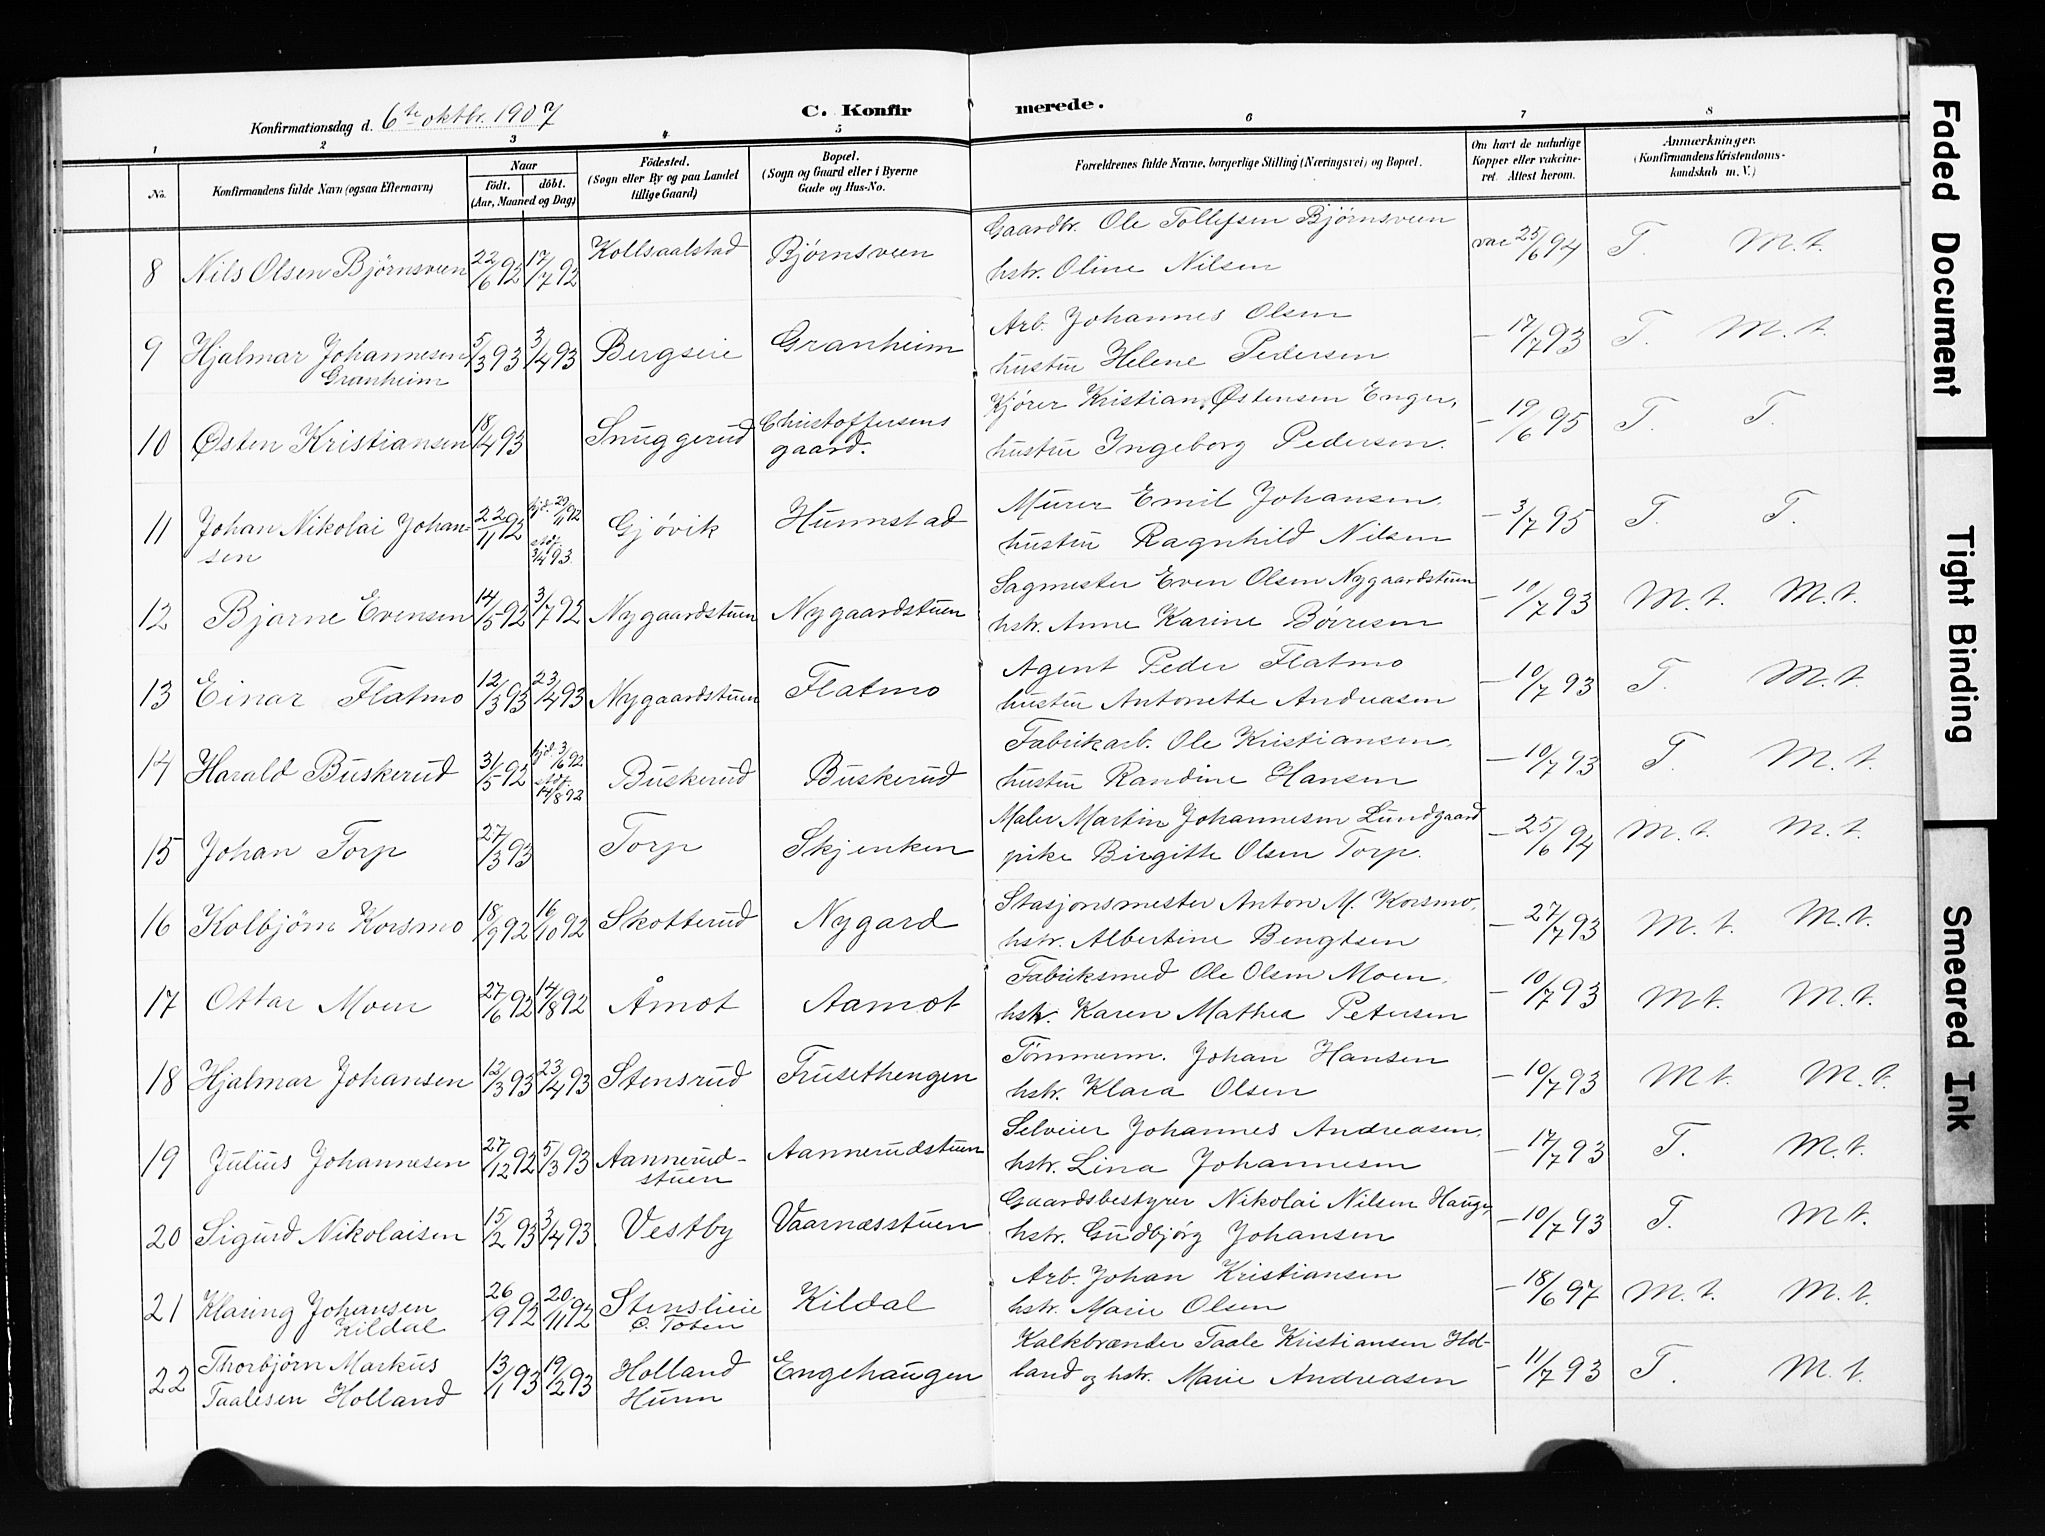 Konfirmationsdag d. 6te oktbr. 1907
C. Konfirmerede.
1 2 3 4 5 6 7 8
No.
Konfirmandens fulde Navn (ogsaa Efternavn)
Naar
født. døbt.
(Aar, Maaned og Dag)
Födested.
(Sogn eller By og paa Landet
tillige Gaard)
Bopæl.
(Sogn og Gaard eller i Byerne
Gade og Hus-No.
Forældrenes fulde Navne, borgerlige Stilling (Næringsvei) og Bopæl.
Om havt de naturlige
Kopper eller vakcine-
ret. Attest herom.
Anmærkninger.
(Konfirmandens Kristendoms-
kundskab m. V.)
8 Nils Olsen Bjørnsveen 22/6 92 17/7 92 Kollsaalstad Bjørnsveen Gaardbr. Ole Tollefsen Bjørnsveen vac 25/6 94 T. M.t.
hstr. Oline Nilsen
9 Hjalmar Johannesen 5/3 93 3/4 93 Bergseie Granheim Arb. Johannes Olsen — 17/7 93 T. M.t.
Granheim hustru Helene Pedersen
10 Østen Kristiansen 18/4 93 Snuggerud Christoffersens Kjører Kristian Østensen Enger, — 19/6 95 T. T.
gaard. hustru Ingeborg Pedersen.
11 Johan Nikolai Johan- 22/11 92 hjd. 29/11 92 Gjøvik Hunnstad Murer Emil Johansen, — 3/7 95 T. T.
sen stdf. 3/4 93. hustru Ragnhild Nilsen
12 Bjarne Evensen 14/5 92 3/7 92 Nygaardstuen Nygaardstuen Sagmester Even Olsen Nygaardstuen — 10/7 93 M.t. M.t.
hstr. Anne Karine Børresen
13 Einar Flatmo 12/3 93 23/4 93 Nygaardstuen Flatmo Agent Peder Flatmo — 10/7 93 T. M.t.
hustru Antonette Andreasen
14 Harald Buskerud 31/5 92 hjd. 3/6 92 Buskerud Buskerud Fabrikarb. Ole Kristiansen, — 10/7 93 T. M.t.
stdf. 14/8 92 hustru Randine Hansen
15 Johan Torp 27/3 93 Torp Skjenken Maler Martin Johannesen Lundgaard — 25/6 94 M.t. M.t.
pike Birgitte Olsen Torp.
16 Kolbjørn Korsmo 18/9 92 16/10 92 Skotterud Nygard Stasjonsmester Anton M. Korsmo, — 27/7 93 M.t. M.t.
hstr. Albertine Bengtsen
17 Ottar Moen 27/6 92 14/8 92 Åmot Aamot Fabriksmed Ole Olsen Moen, — 10/7 93 M.t. M.t.
hstr. Karen Mathea Petersen
18 Hjalmar Johansen 12/3 93 23/4 93 Stensrud Frusethengen Tømmerm. Johan Hansen — 10/7 93 M.t. M.t.
hstr. Klara Olsen
19 Julius Johannesen 27/12 92 5/3 93 Aannerud- Aannerudstuen Selveier Johannes Andreasen, — 17/7 93 T. M.t.
stuen hstr. Lina Johannesen
20 Sigurd Nikolaisen 15/2 93 3/4 93 Vestby Vaarnæsstuen Gaardsbestyrer Nikolai Nilsen Hauge, — 10/7 93 T. M.t.
hstr. Gudbjørg Johansen
21 Klaring Johansen 26/9 92 20/11 92 Stenslieie Kildal Arb. Johan Kristiansen — 18/6 97 M.t. M.t.
Kildal Ø. Toten hstr. Marie Olsen
22 Thorbjørn Markus 13/1 93 19/2 93 Holland Engehaugen Kalkbrænder Taale Kristiansen Hol- — 11/7 93 T. M.t.
Taalesen Holland Hunn land og hstr. Marie Andreasen
Faded Document
Tight Binding
Smeared Ink